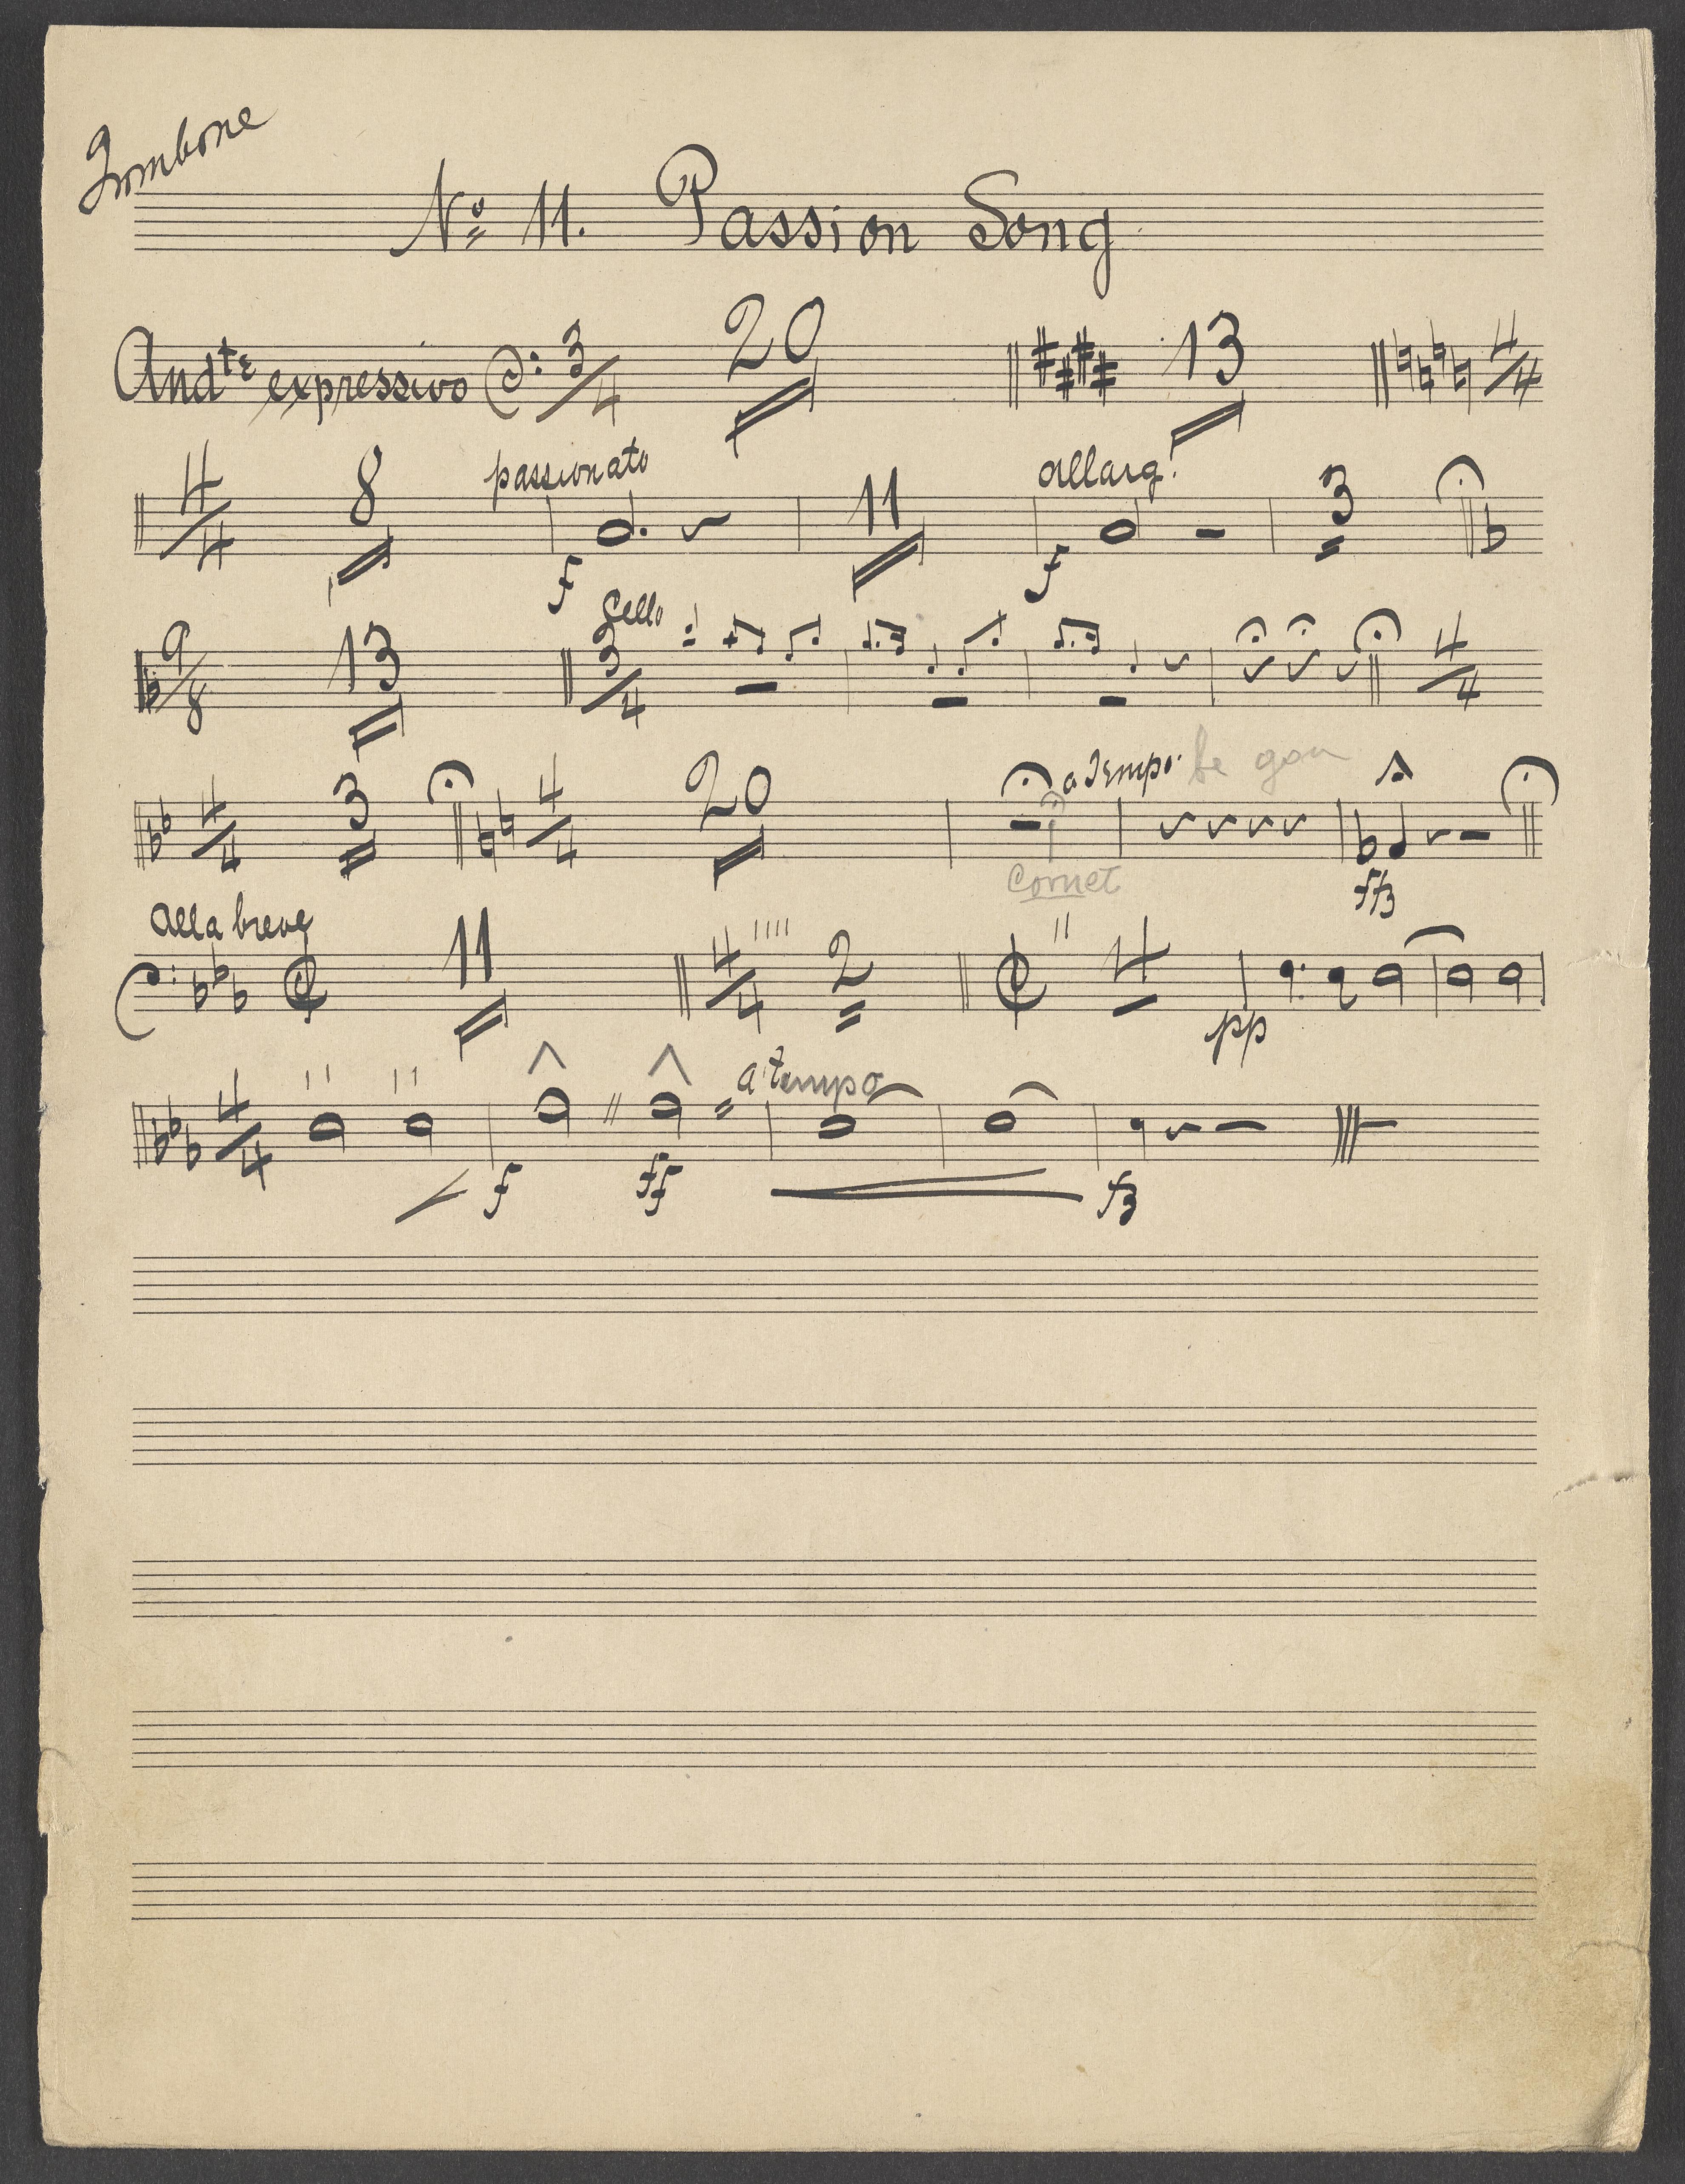 Trombone
No 11. Passion Song
Andte expressivo 3/4 20 13 4/4
4/4 8 passionato f 11 allarg. f 3
9/8 13 Cello 3/4 4/4
4/4 3 4/4 20 a Tempo. be gon
Cornet ffz
Alla breve 11 4/4 2 4 pp
4/4 f ff a tempo fz